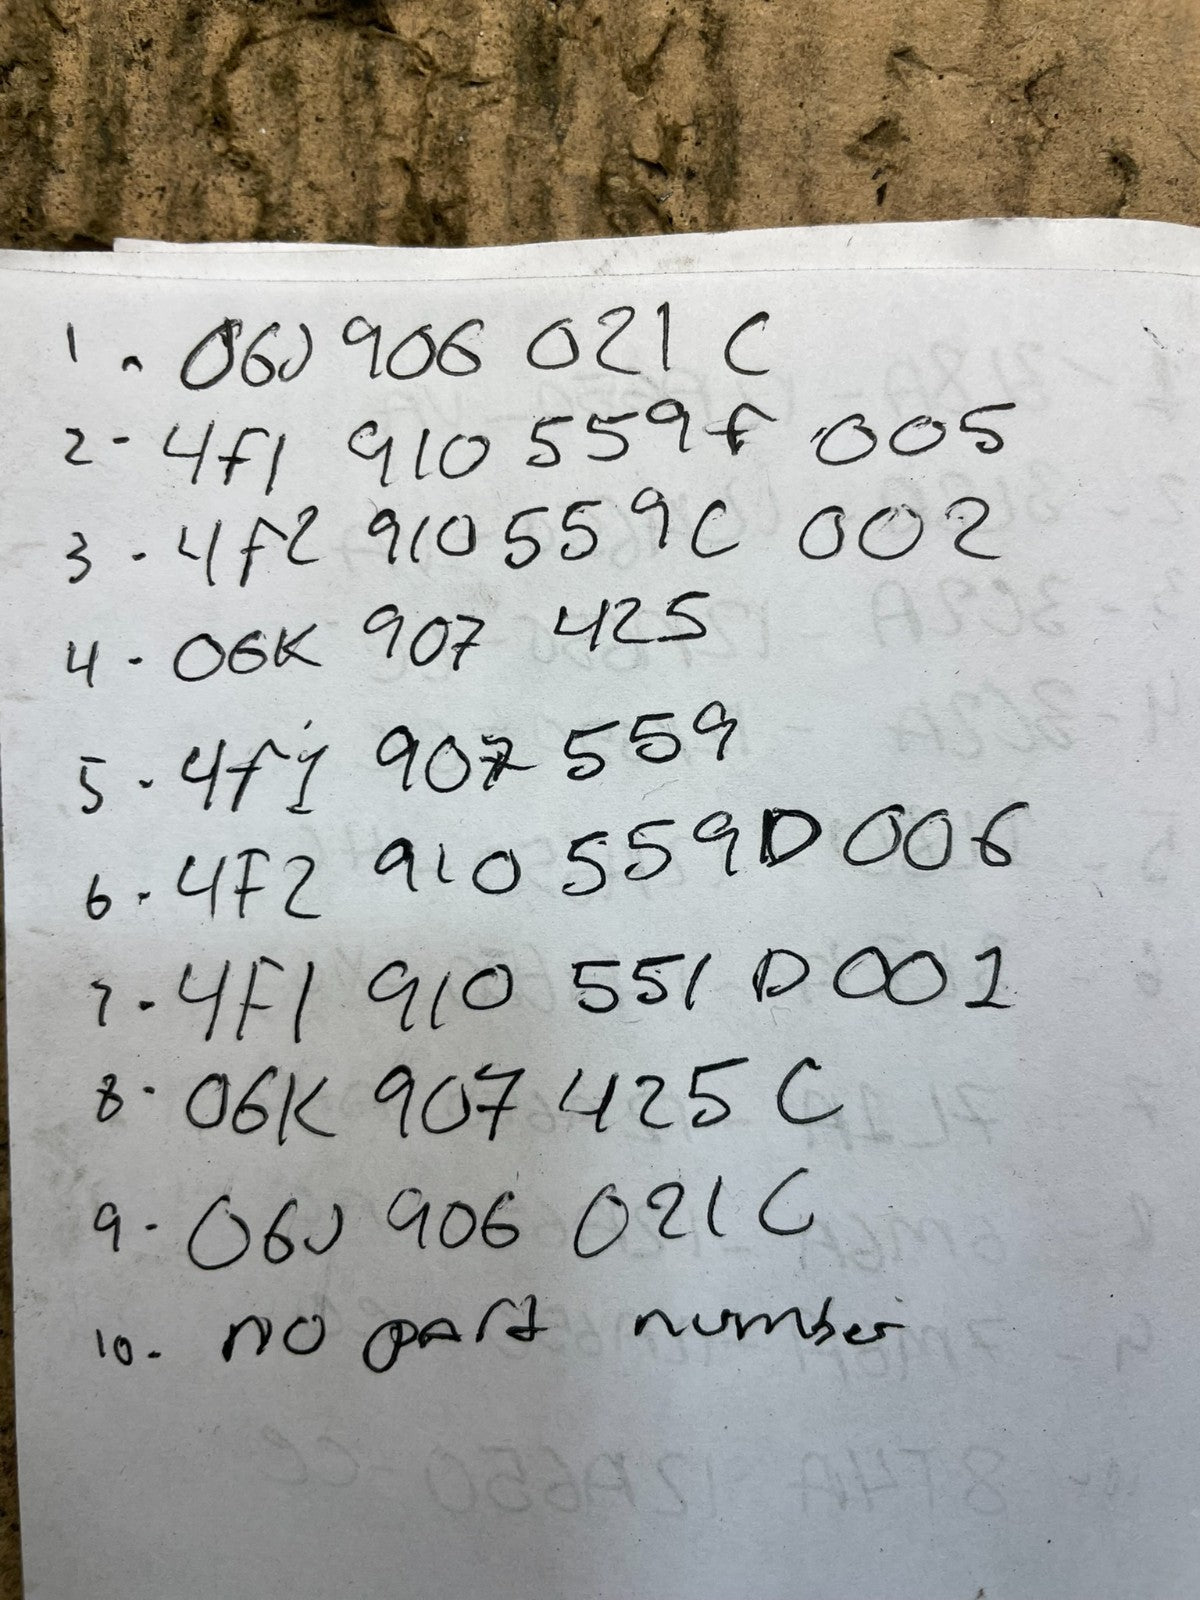 1. 06J 906 021 C
2- 4f1 910 559f 005
3 - 4f2 910 559C 002
4 - 06K 907 425
5 - 4f1 907 559
6 - 4F2 910 559D 006
7 - 4F1 910 551 D 001
8 - 06K 907 425 C
9 - 06J 906 021 C
10. no part number